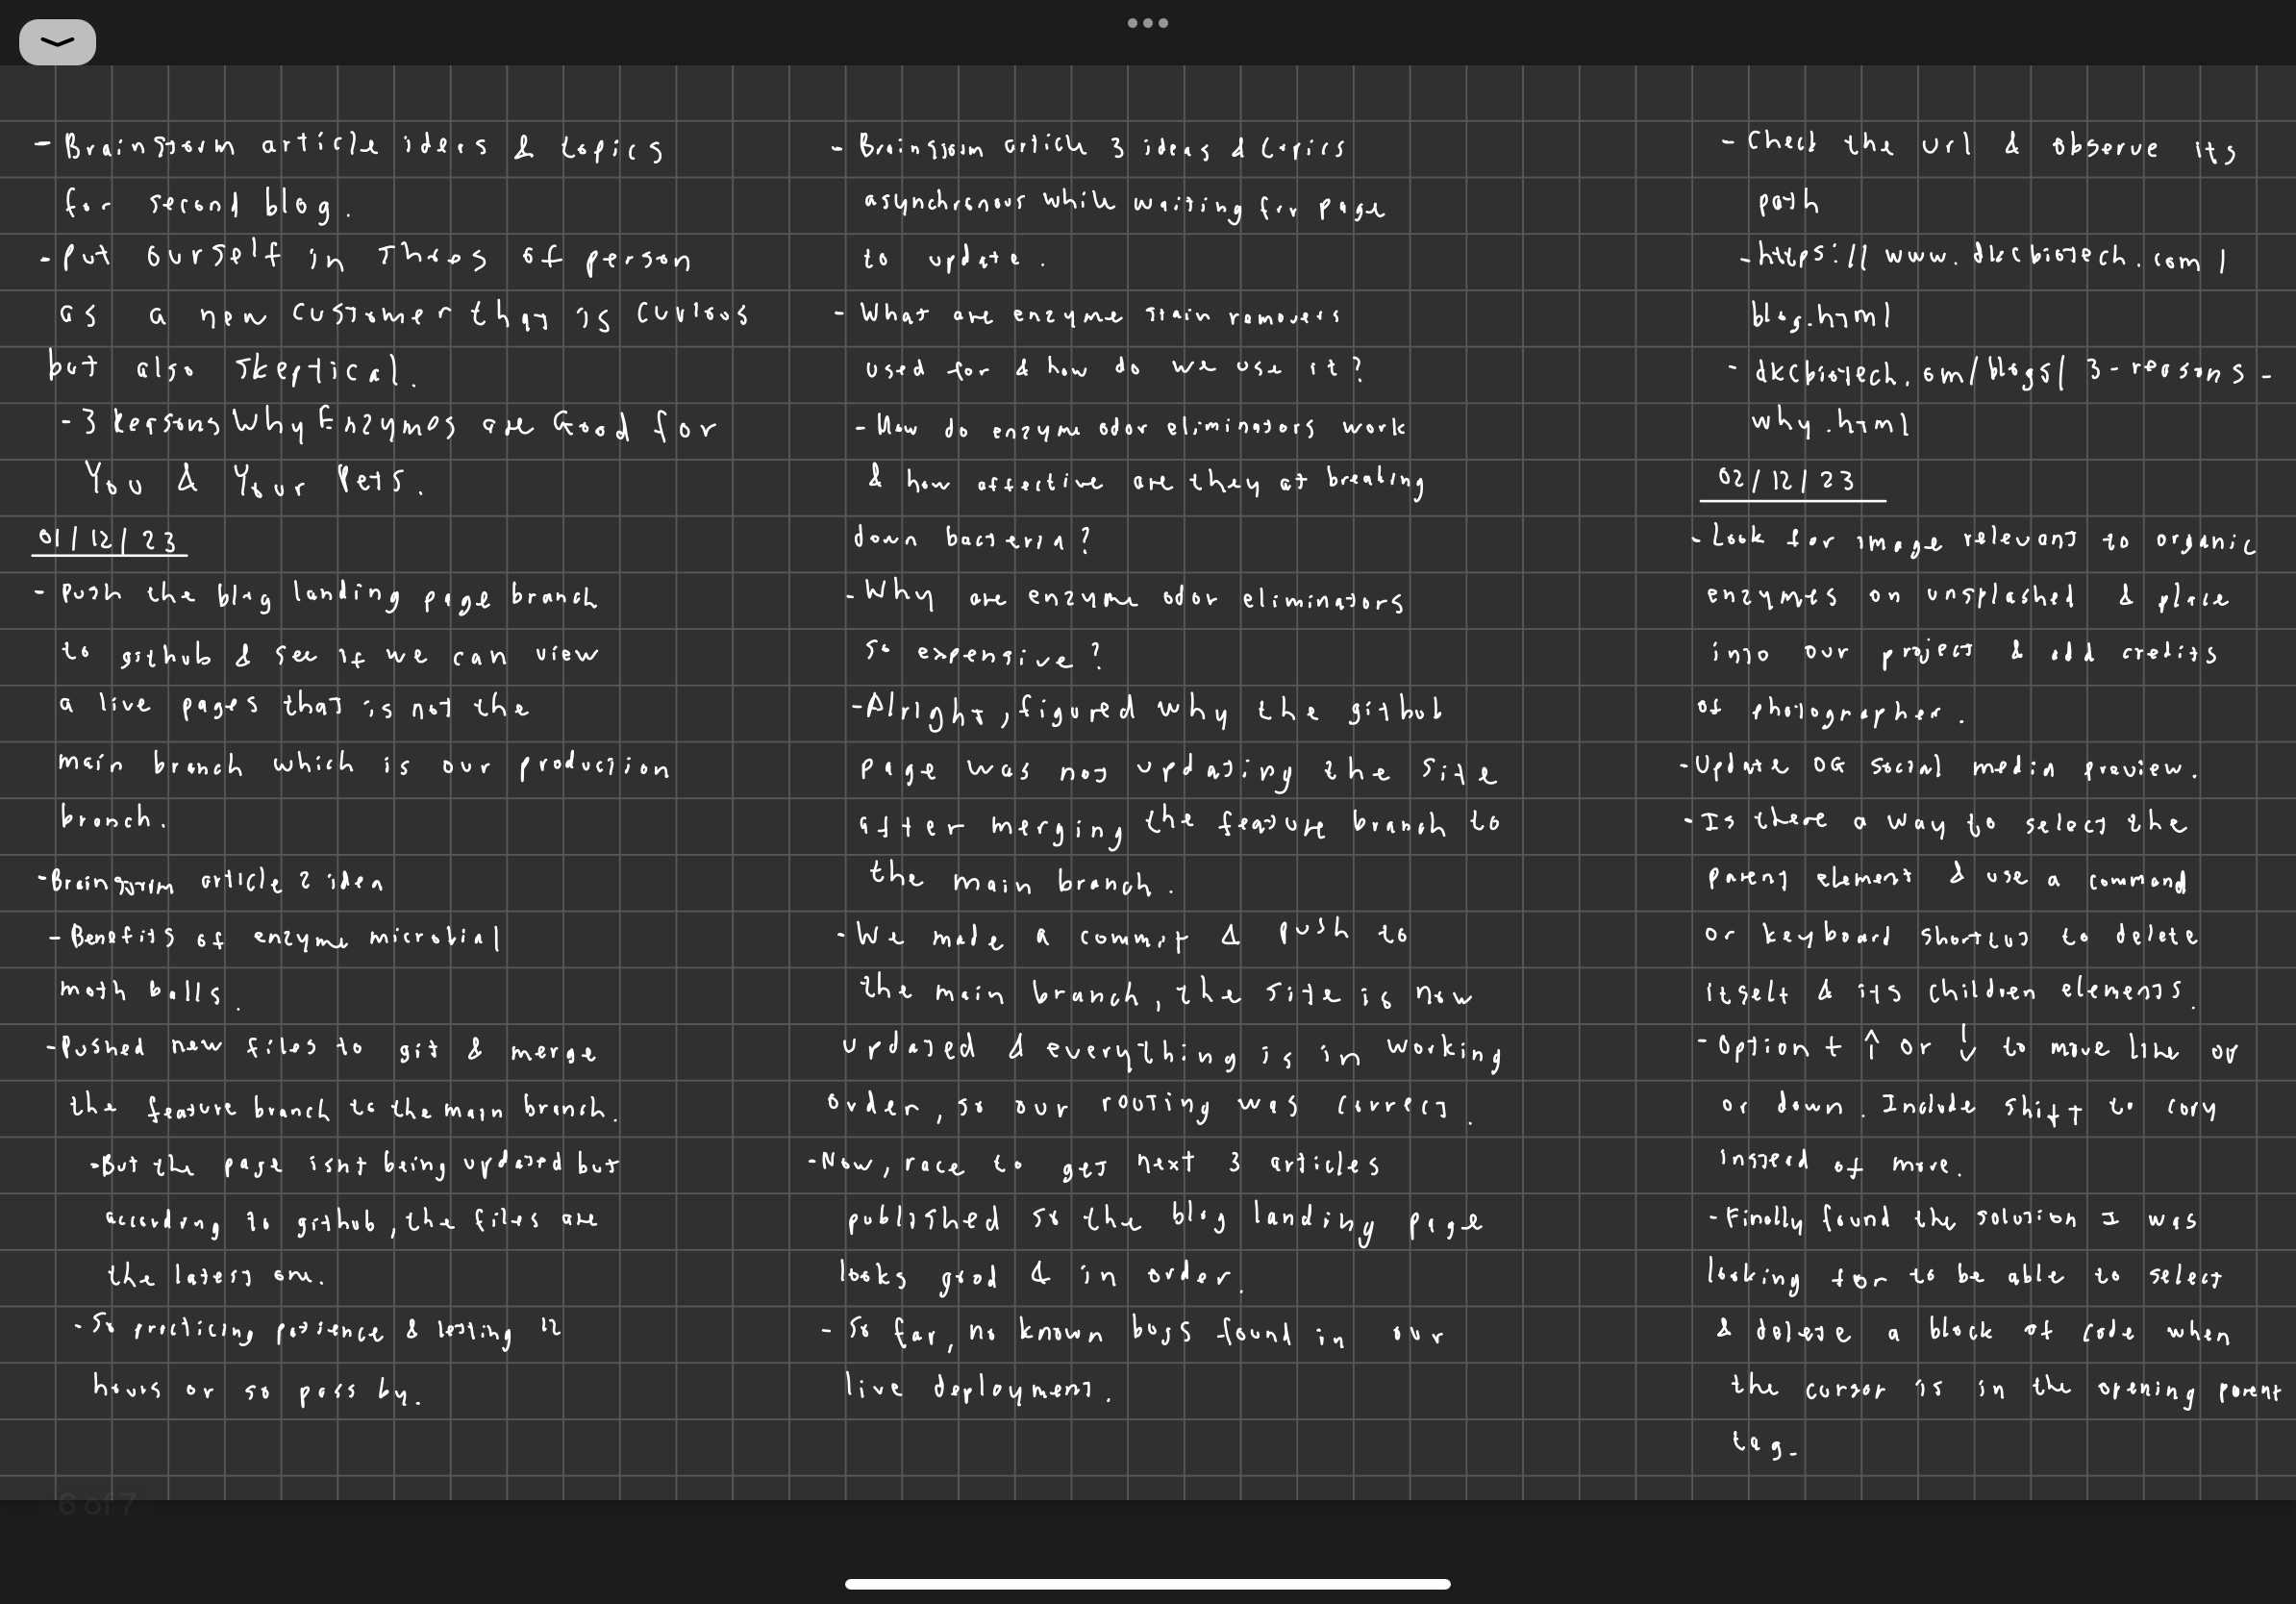 - Brainstorm article ideas & topics
for second blog.
- Put ourself in shoes of person
as a new customer that is curious
but also skeptical.
- 3 Reasons Why Enzymes are Good for
You & Your Pets.
01/12/23
- Push the blog landing page branch
to github & see if we can view
a live pages that is not the
main branch which is our production
branch.
- Brainstorm article 2 idea
- Benefits of enzyme microbial
moth balls.
- Pushed new files to git & merge
the feature branch to the main branch.
- But the page isnt being updated but
according to github, the files are
the latest one.
- So practicing patience & letting 12
hours or so pass by.
- Brainstorm article 3 ideas & topics
asynchronous while waiting for page
to update.
- What are enzyme stain removers
used for & how do we use it?
- How do enzyme odor eliminators work
& how affective are they at breaking
down bacteria?
- Why are enzyme odor eliminators
so expensive?
- Alright, figured why the github
page was not updating the site
after merging the feature branch to
the main branch.
- We made a commit & push to
the main branch, the site is now
updated & everything is in working
order, so our routing was correct.
- Now, race to get next 3 articles
published so the blog landing page
looks good & in order.
- So far, no known bugs found in our
live deployment.
- Check the url & observe its
path
- https://www.dkcbiotech.com/
blog.html
- dkcbiotech.om/blogs/3-reasons-
why.html
02/12/23
- Look for image relevant to organic
enzymes on unsplashed & place
into our project & add credits
of photographer.
- Update OG social media preview.
- Is there a way to select the
parent element & use a command
or keyboard shortcut to delete
itself & its children elements.
- Option + ↑ or ↓ to move line
or down. Include shift to copy
instead of move.
- Finally found the solution I was
looking for to be able to select
& delete a block of code when
the cursor is in the opening parent
tag.
6 of 7